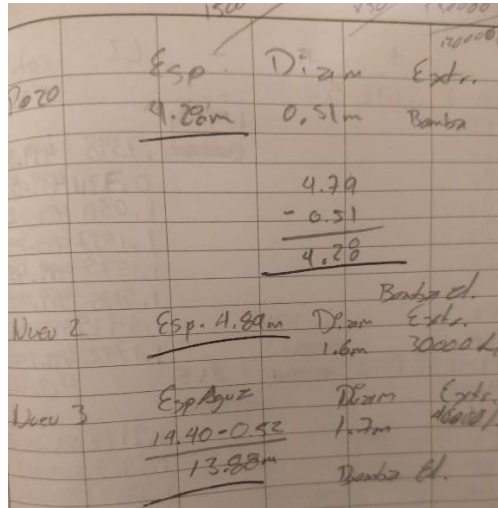 Esp Diam Extr.
Pozo 4.28m 0,51m Bomba
4.79
- 0.51
4.28
Bomba El.
Nuev 2 Esp. 4.89m Diam Extr.
1.6m 30000 L
Nuev 3 Esp Agua Diam Extr.
14.40-0.52 1.7m
13.88m Bomba El.